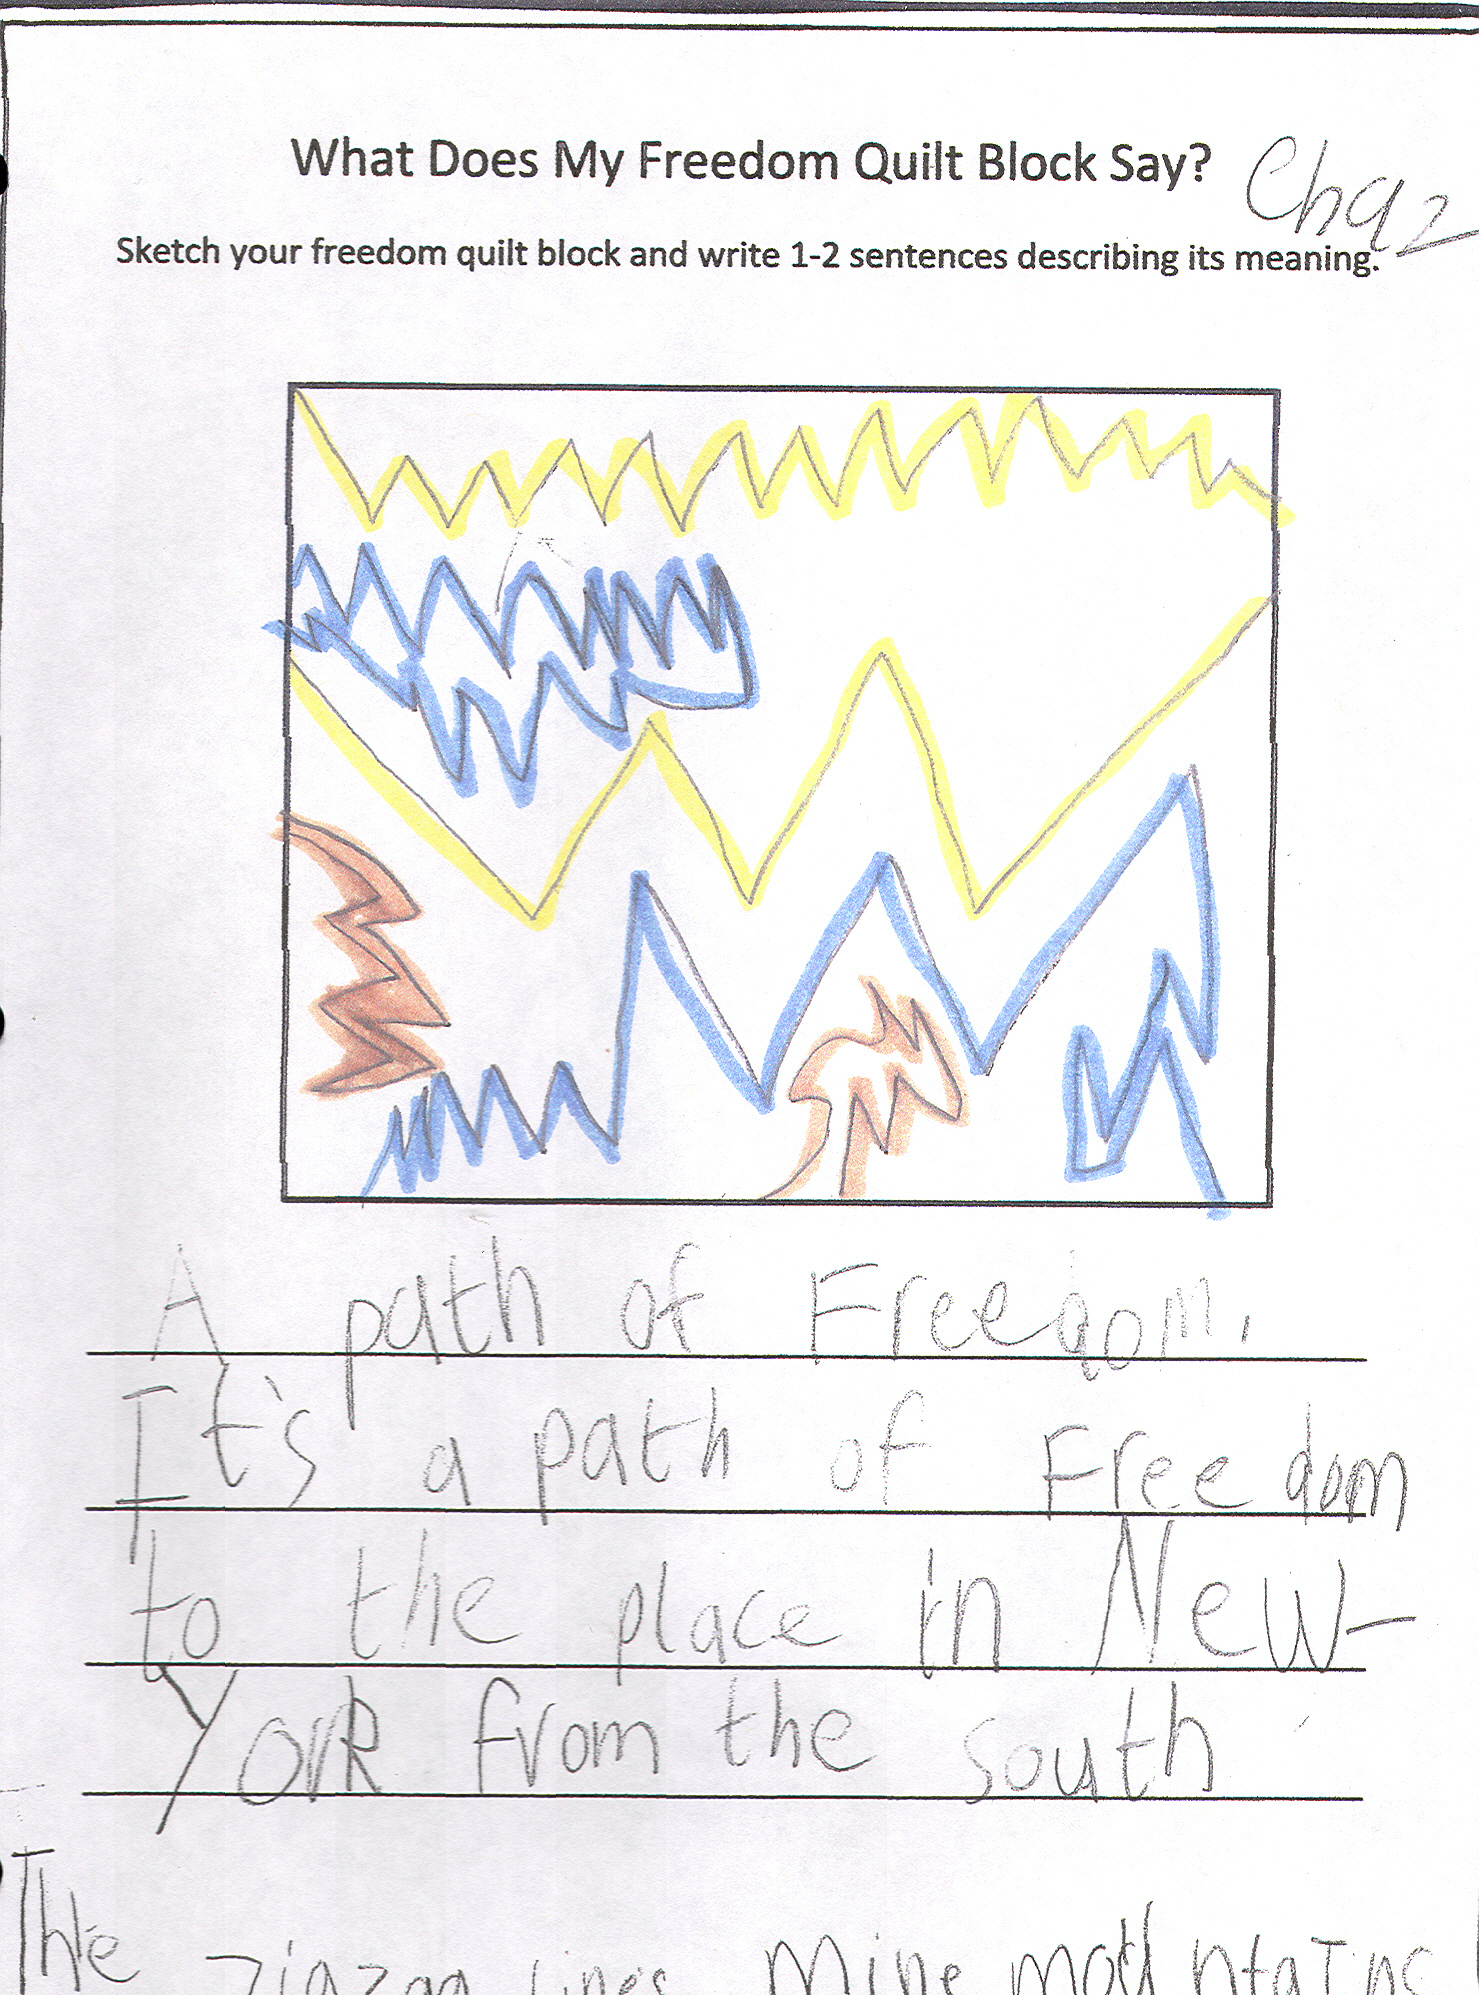 What Does My Freedom Quilt Block Say?
Chaz
Sketch your freedom quilt block and write 1-2 sentences describing its meaning.
A path of Freedom.
It's a path of Freedom
to the place in New-
York from the south
The zigzag lines Mine mountains